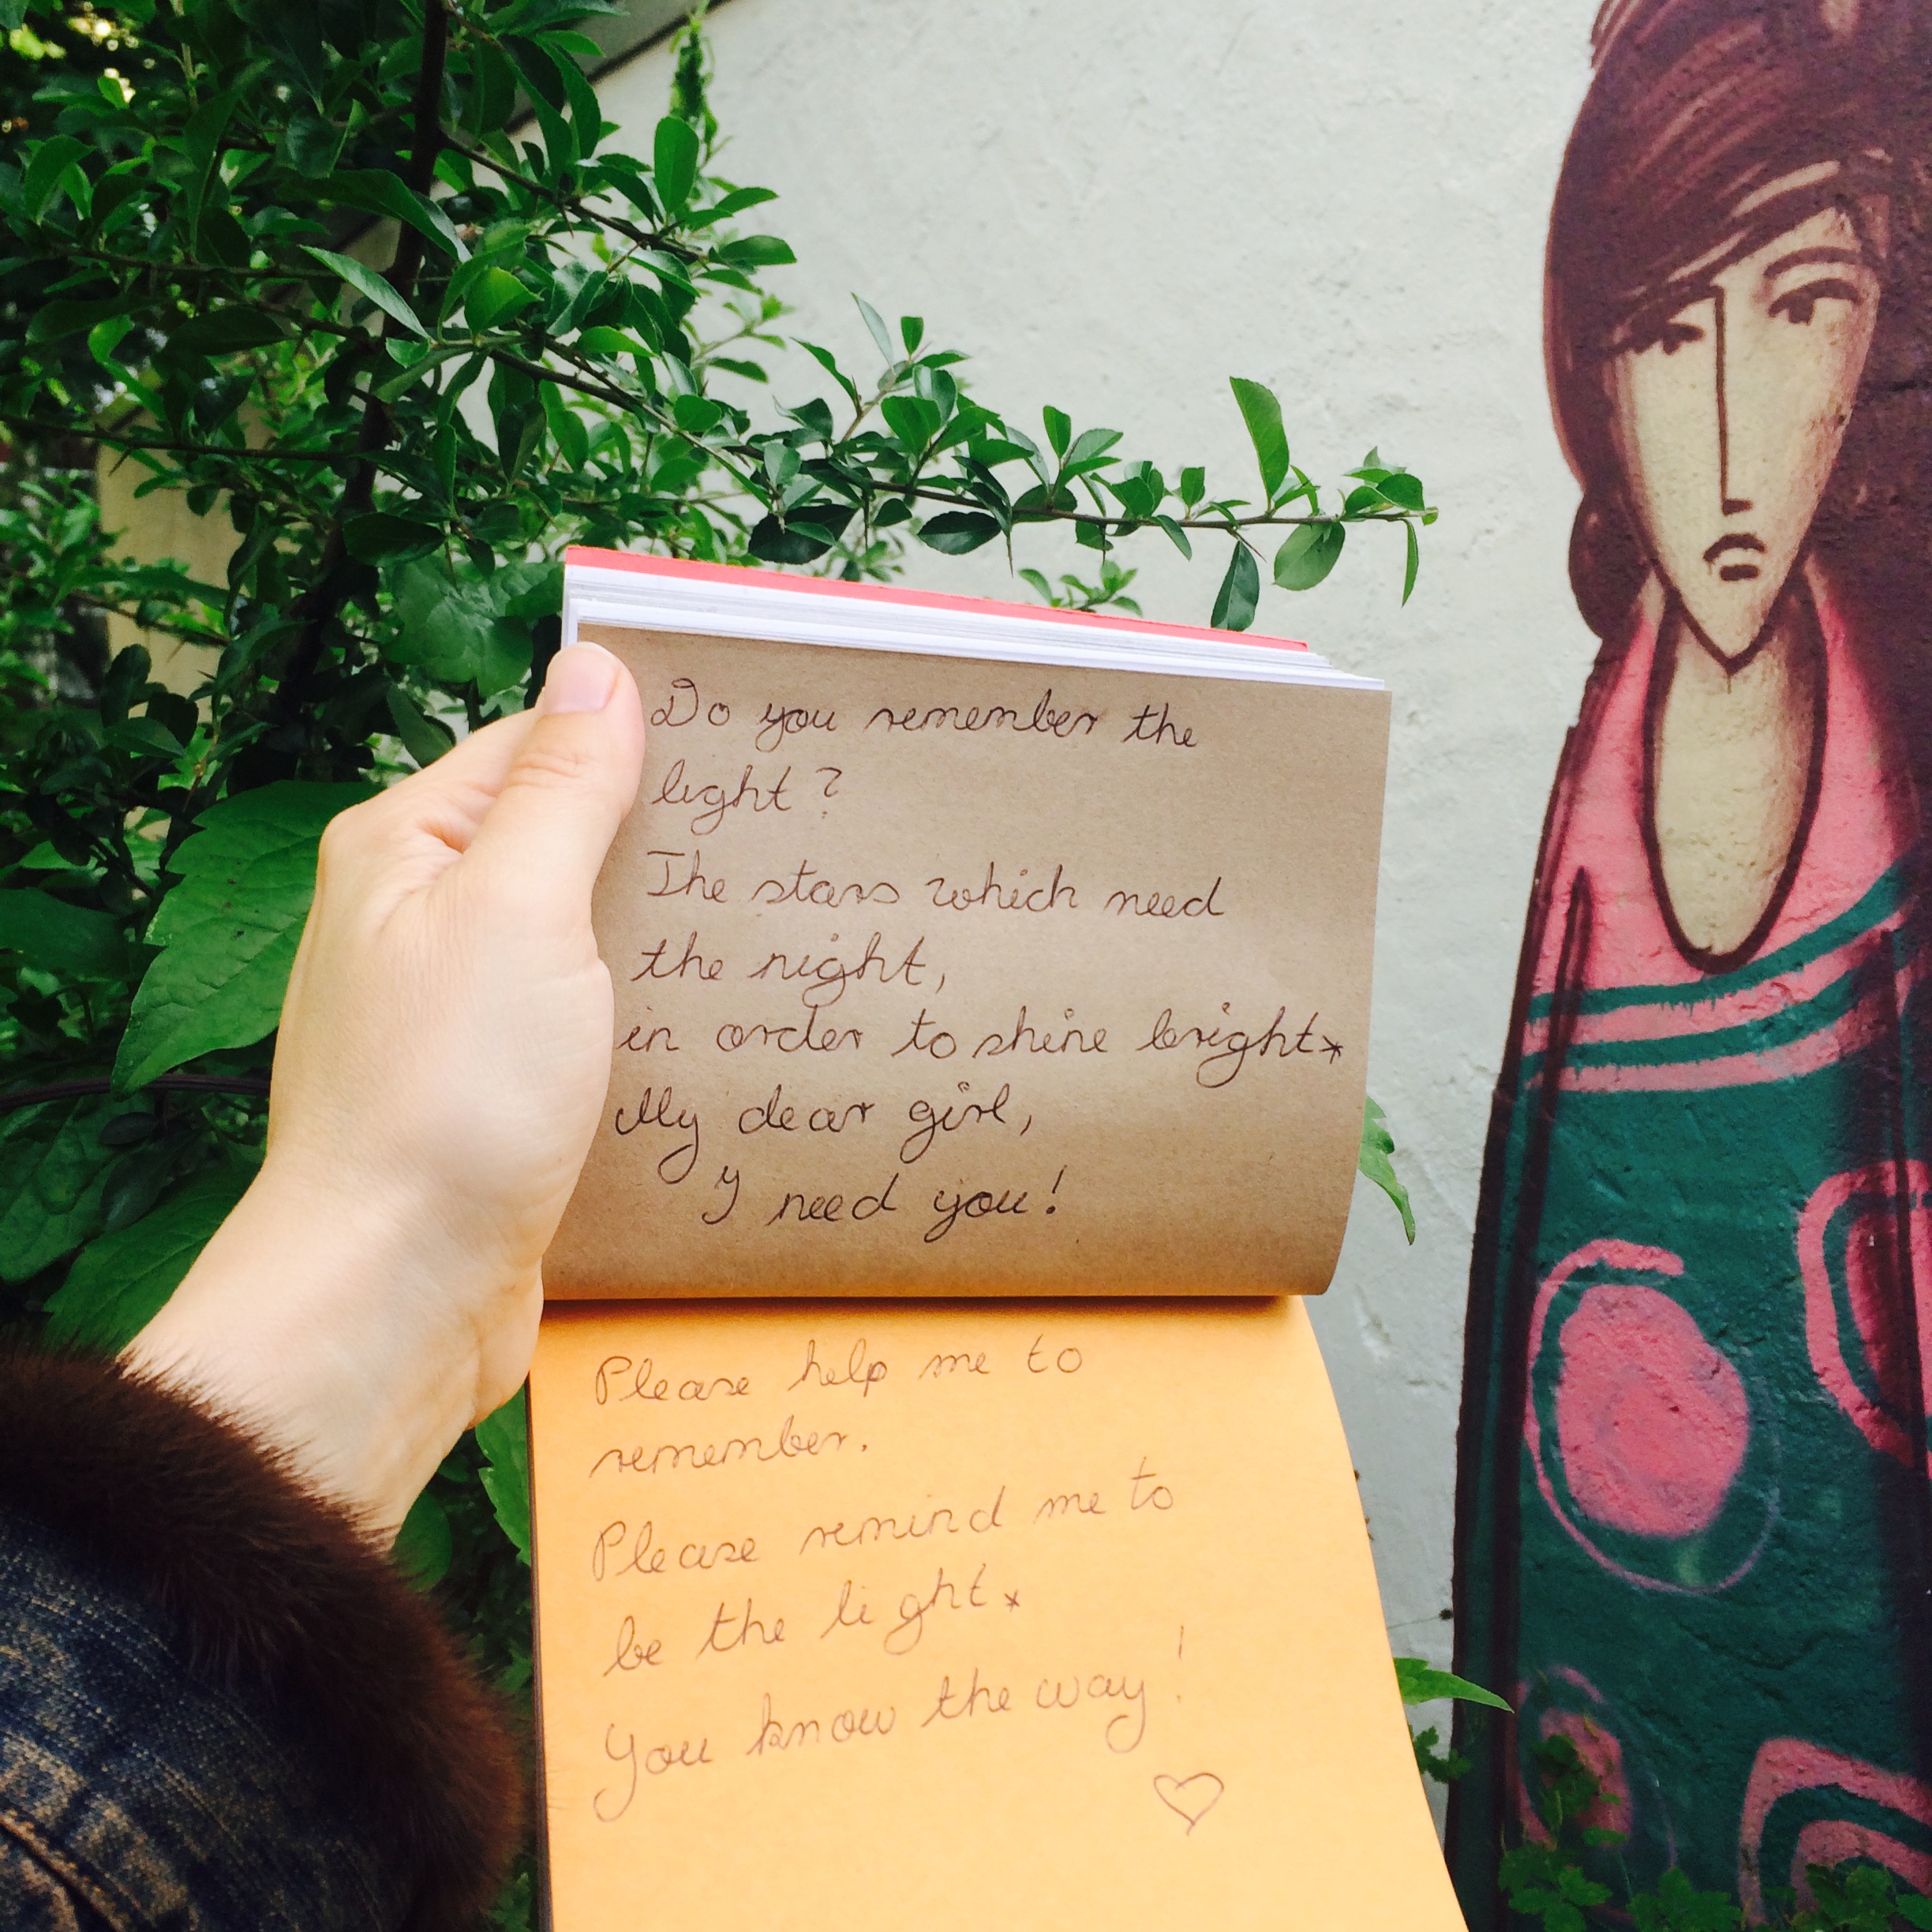 Do you remember the
light?
The stars which need
the night,
in order to shine bright*
My dear girl,
I need you!
Please help me to
remember.
Please remind me to
be the light*
You know the way!
♡